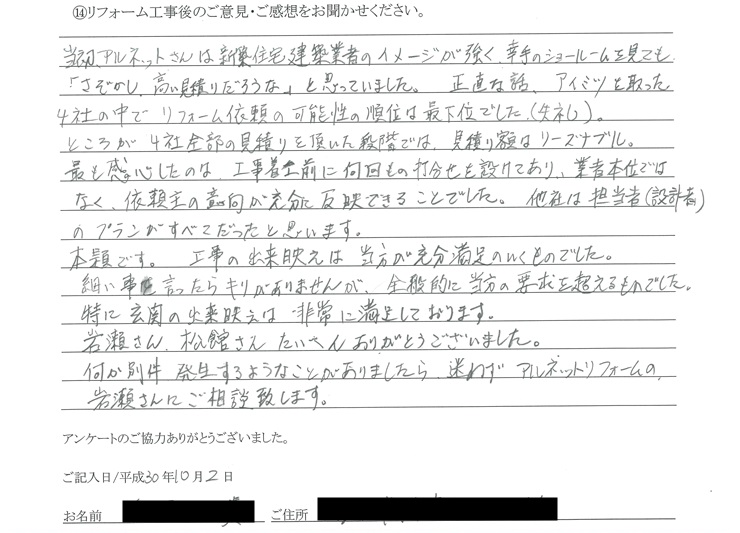 ⑭リフォーム工事後のご意見・ご感想をお聞かせください。
当初、アルネットさんは新築住宅建築業者のイメージが強く 幸手のショールームを見ても
「さぞかし、高い見積りだろうな」と思っていました。 正直な話、アイミツを取った
4社の中で リフォーム依頼の可能性の順位は最下位でした。(失礼)。
ところが 4社全部の見積りを頂いた段階では、見積り額はリーズナブル。
最も感心したのは、工事着工前に何回もの打合せを設けてあり、業者本位では
なく、依頼主の意向が充分に反映できることでした。 他社は担当者(設計者)
のプランがすべてだったと思います。
本題です。 工事の出来映えは 当方が充分満足のいくものでした。
細い事 言ったらキリがありませんが、全般的に当方の要求を超えるものでした。
特に玄関の出来映えは 非常に満足しております。
岩瀬さん、松館さん たいへんありがとうございました。
何か別件 発生するようなことがありましたら 迷わず アルネットリフォームの、
岩瀬さんにご相談致します。
アンケートのご協力ありがとうございました。
ご記入日/平成30年10月2日
お名前
ご住所